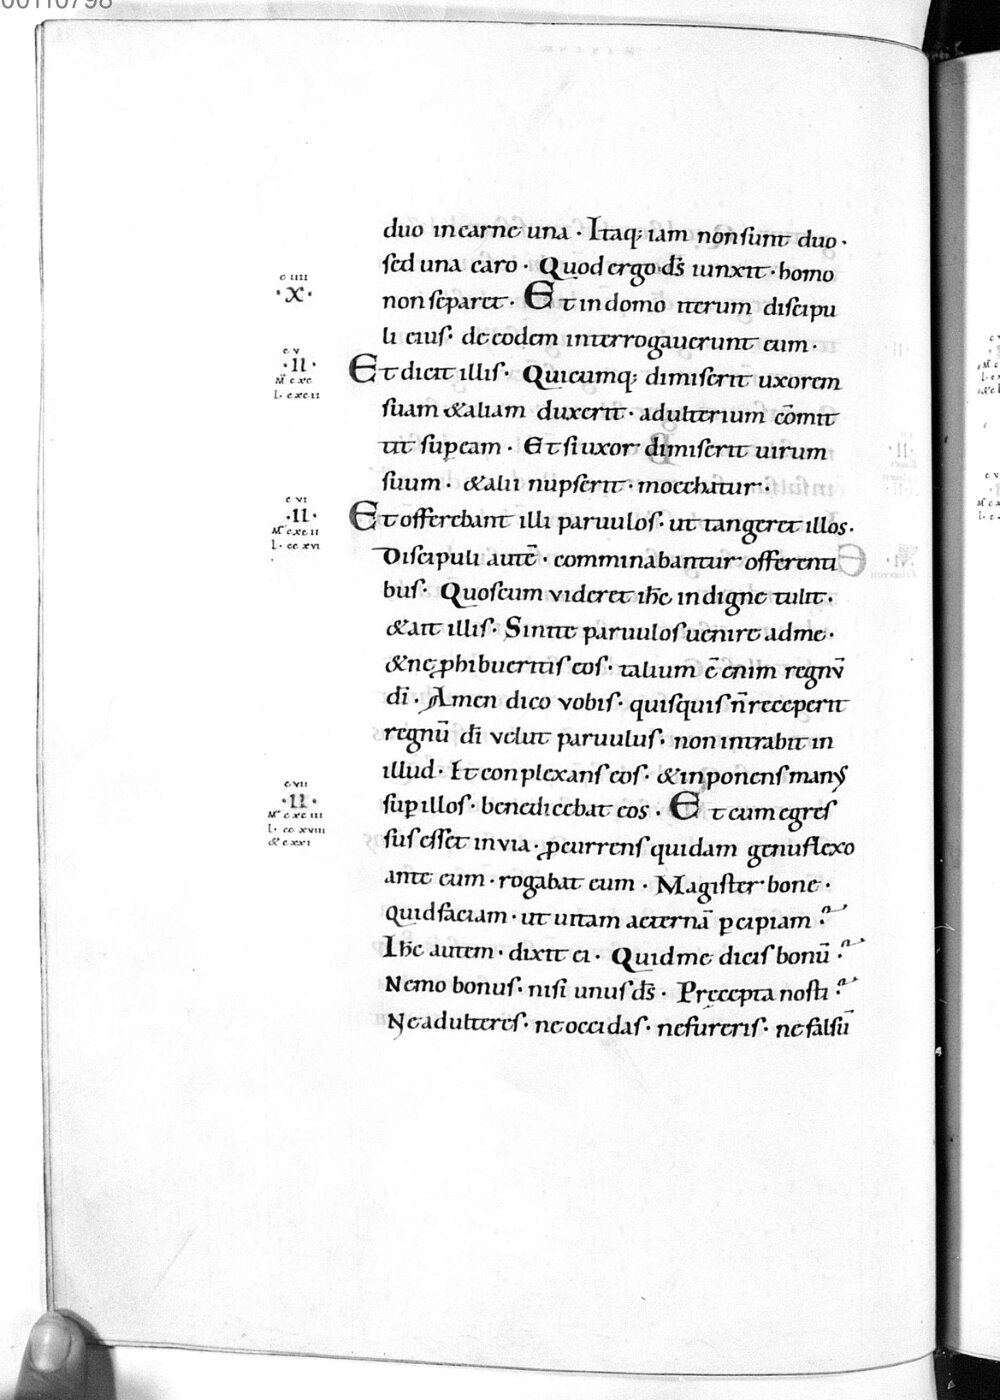 00110798
duo in carne una · Itaq; iam non sunt duo ·
sed una caro · Quod ergo d̄s iunxit · homo
c IIII
· X ·
non separet · Et in domo iterum discipu
li eius · de eodem interrogauerunt eum ·
c V
· II ·
M̄ c xc
L · c xc II
Et dicit illis · Quicumq; dimiserit uxorem
suam & aliam duxerit · adulterium cōmit
tit sup eam · Et si uxor dimiserit uirum
suum · & alii nupserit · moechatur ·
c VI
· II ·
M̄ c xc II
L · cc xvi
Et offerebant illi paruulos · ut tangeret illos ·
Discipuli autē · comminabantur offerenti
bus · Quos cum videret ih̄c indigne tulit ·
& ait illis · Sinite paruulos uenire ad me ·
& ne ꝓhibueritis eos · talium ē enim regnv̄
dī · Amen dico vobis · quisquis n̄ receperit
regnū dī velut paruulus · non intrabit in
illud · Et conplexans eos · & inponens manꝰ
c VII
· II ·
M̄ c xc III
L · cc xviii
& c xxi
sup illos · benedicebat eos · Et cum egres
sus esset in via · ꝓcurrens quidam genu flexo
ante eum · rogabat eum · Magister bone ·
quid faciam · ut uitam aeternā ꝑcipiam ?
Ih̄c autem · dixit ei · Quid me dicis bonū ?
Nemo bonus · nisi unus d̄s · Pręcepta nosti ?
Ne adulteres · ne occidas · ne fureris · ne falsū